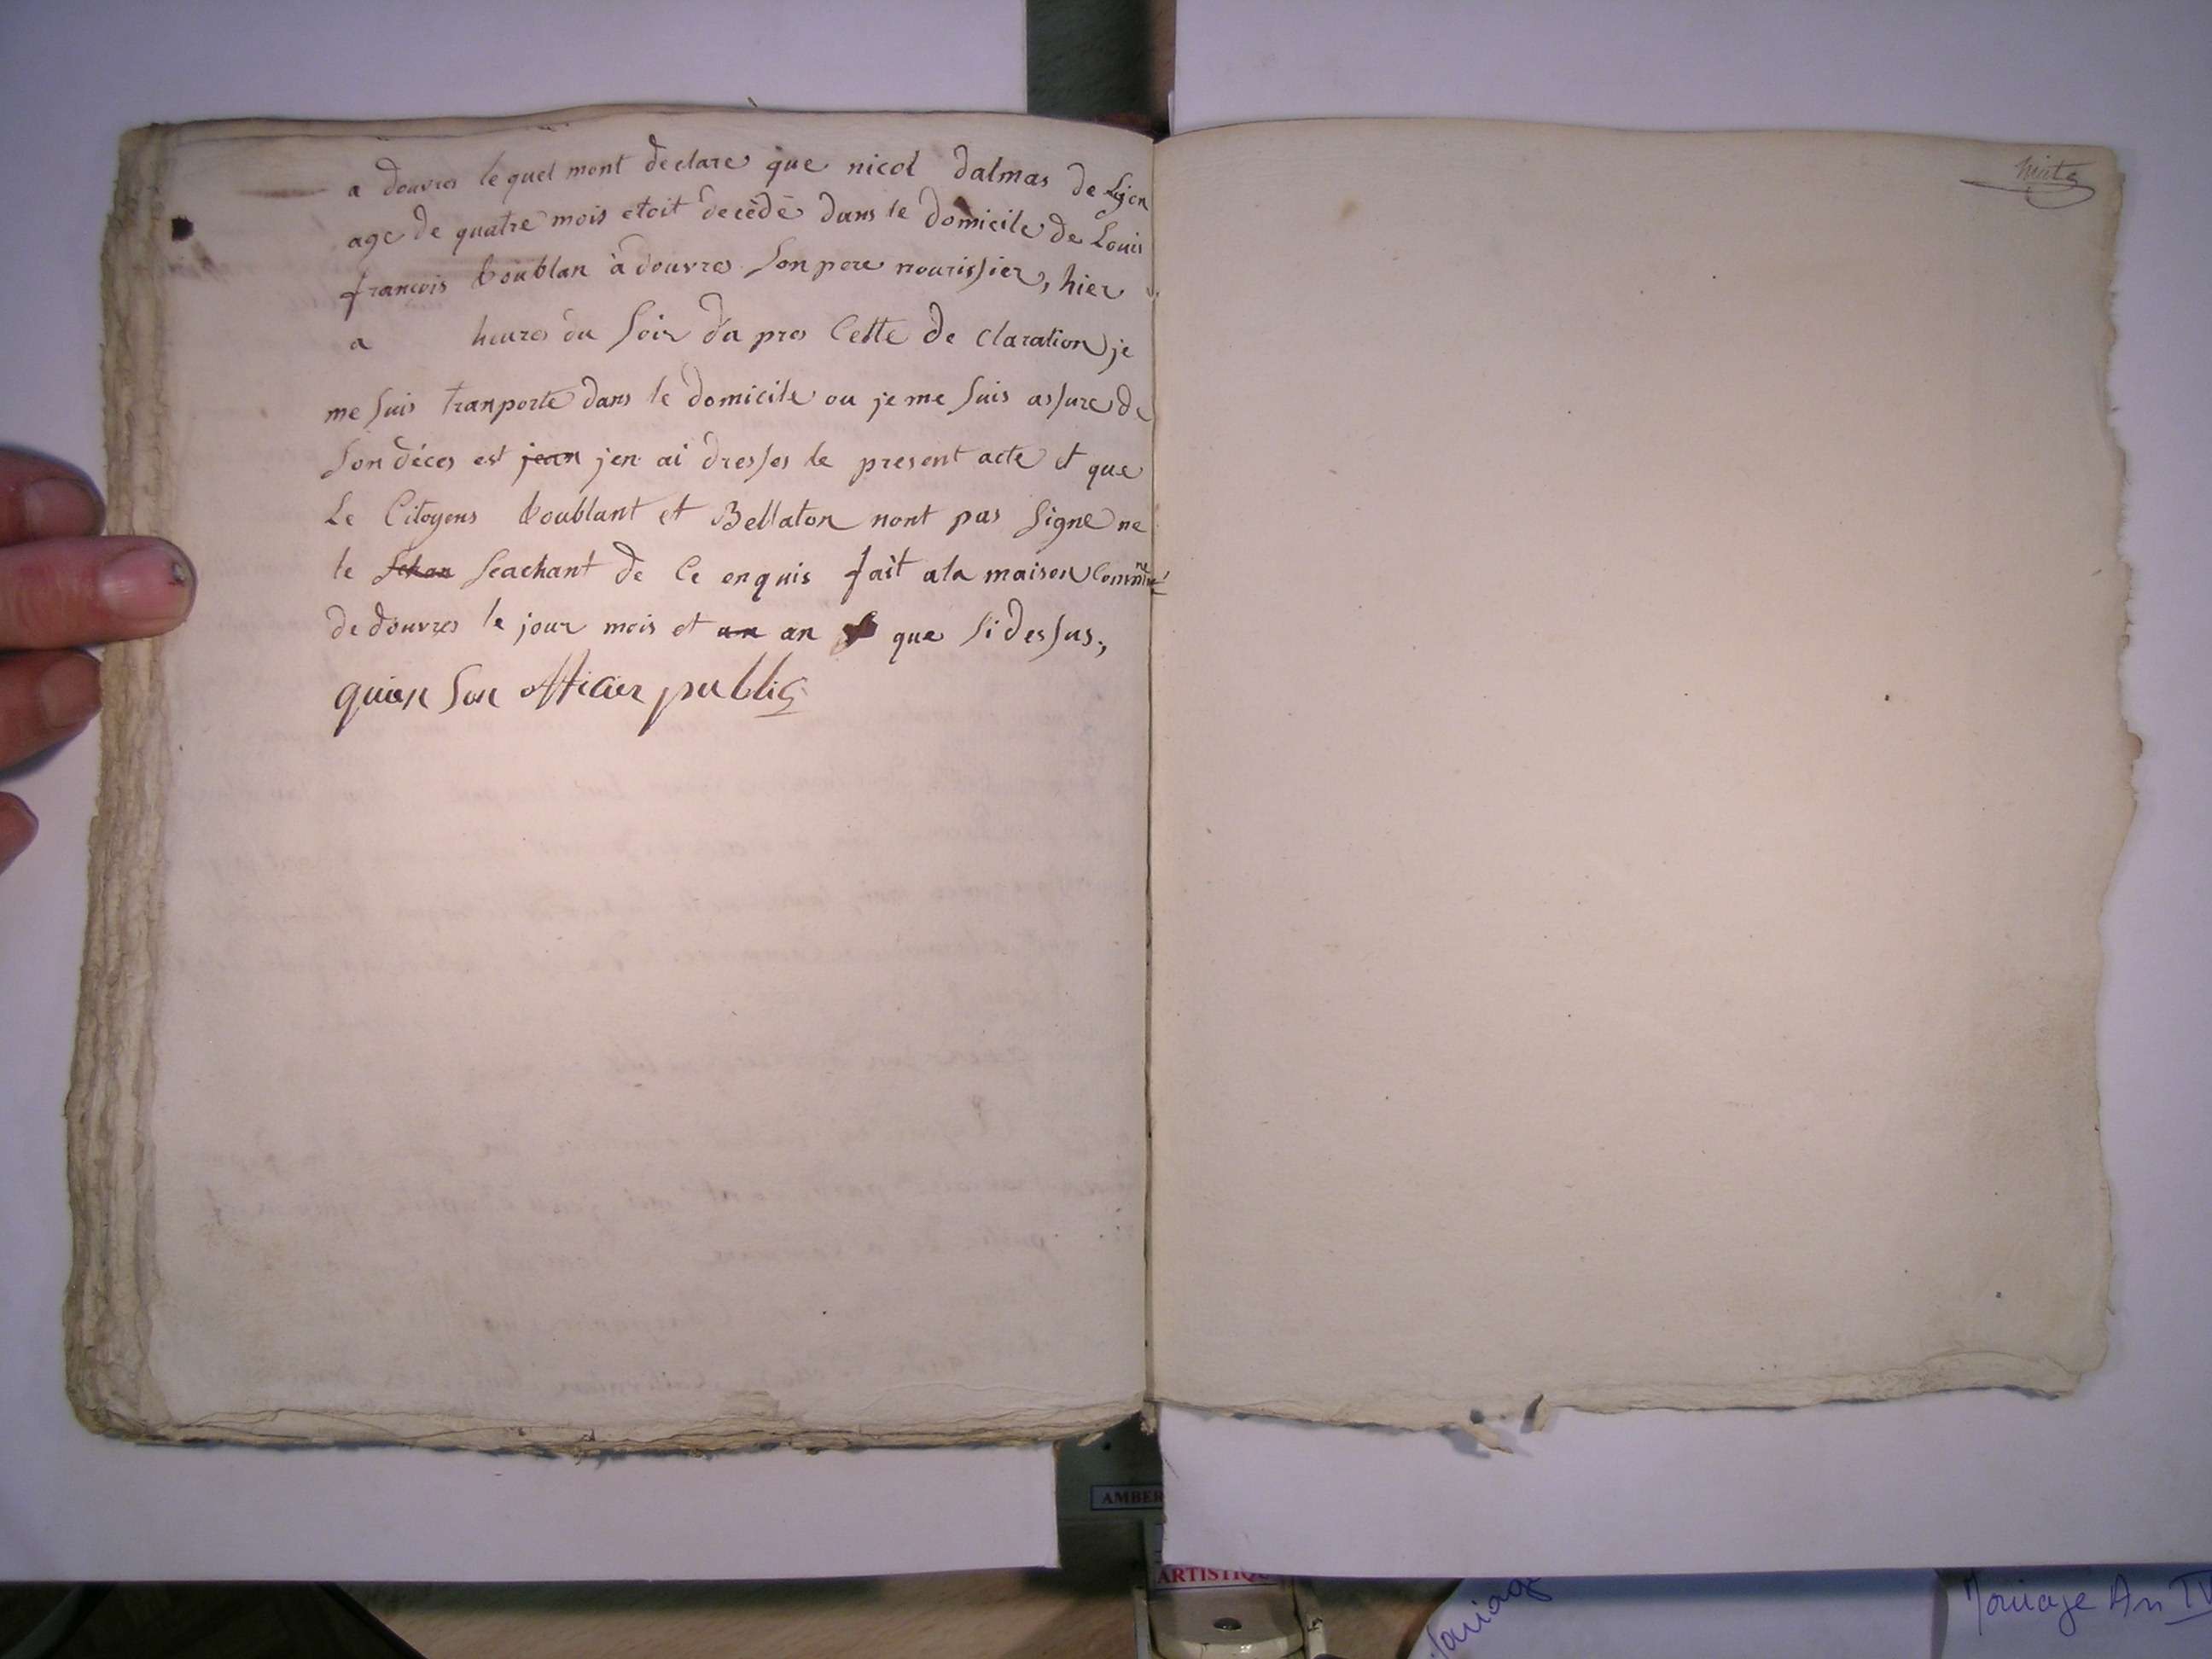 a douvres lequel mont declare que nicol dalmas de Lyon
age de quatre mois etoit decédé dans le domicile de Louis
francois boublan à douvres son pere nourissier, hier
a heures du soir da pres Cette de claration je
me suis tranporte dans le domicile ou je me suis assure de
son déces est jean jen ai dresses le present acte et que
Le Citoyens boublant et Bellaton nont pas signe ne
le seachant de Ce enquis fait ala maison Commune
de douvres le jour mois et an que si dessus,
officier public
AMBER
ARTISTIQ
Mariage
Mariage An IV